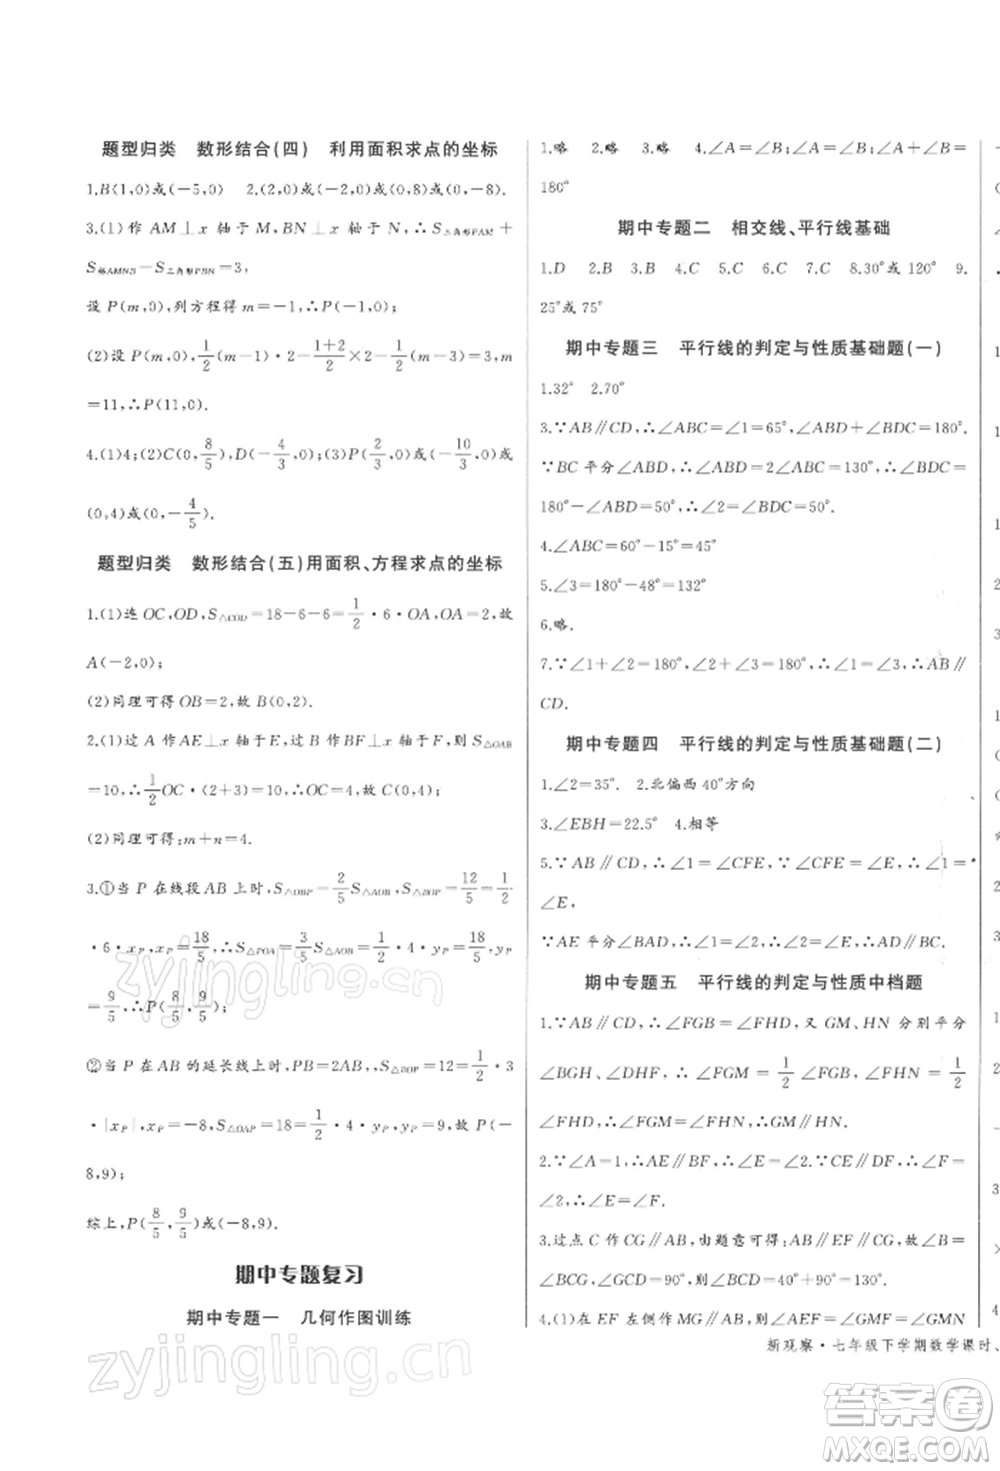 题型归类　数形结合(四)　利用面积求点的坐标
1.B(1,0)或(-5,0)　2.(2,0)或(-2,0)或(0,8)或(0,-8).
3.(1)作 AM⊥x 轴于 M,BN⊥x 轴于 N,∴S三角形PAM+
S梯AMNB-S三角形PBN=3,
设 P(m,0),列方程得 m=-1,∴P(-1,0).
(2)设 P(m,0),1/2(m-1)·2-(1+2)/2×2-1/2(m-2)=3,m
=11,∴P(11,0).
4.(1)4;(2)C(0,8/5),D(-4/3,0);(3)P(2/3,0)或(-10/3,0)或
(0,4)或(0,-4/5).
题型归类　数形结合(五)用面积、方程求点的坐标
1.(1)连 OC,OD,S△COD=18-6-6=1/2·6·OA,OA=2,故
A(-2,0);
(2)同理可得 OB=2,故 B(0,2).
2.(1)过 A 作 AE⊥x 轴于 E,过 B 作 BF⊥x 轴于 F,则 S△OAB
=10,∴1/2OC·(2+3)=10,∴OC=4,∴C(0,4);
(2)同理可得:m+n=4.
3.①当 P 在线段 AB 上时,S△OBP=2/5S△AOB,S△BOP=12/5=1/2
·6·xP,xP=18/5,∴S△POA=3/5S△AOB=1/2·4·yP=18/5,yP
=9/5,∴P(8/5,9/5);
②当 P 在 AB 的延长线上时,PB=2AB,S△BOP=1/2·3
·|xP|,xP=-8,S△OAP=18=1/2·4·yP=9,故 P(-
8,9);
综上,P(8/5,9/5)或(-8,9).
期中专题复习
期中专题一　几何作图训练
1.略　2.略　3.略　4.∠A=∠B;∠A=∠B;∠A+∠B=
180°
期中专题二　相交线、平行线基础
1.D　2.B　3.B　4.C　5.C　6.C　7.C　8.30°或 120°　9.
25°或 75°
期中专题三　平行线的判定与性质基础题(一)
1.32°　2.70°
3.∵AB∥CD,∴∠ABC=∠1=65°,∠ABD+∠BDC=180°.
∵BC 平分∠ABD,∴∠ABD=2∠ABC=130°,∴∠BDC=
180°-∠ABD=50°,∴∠2=∠BDC=50°.
4.∠A=60°-15°=45°
5.∠3=180°-48°=132°
6.略.
7.∵∠1+∠2=180°,∠2+∠3=180°,∴∠1=∠3,∴AB∥
CD.
期中专题四　平行线的判定与性质基础题(二)
1.∠2=35°.　2.北偏西 40°方向
3.∠EBH=22.5°　4.相等
5.∵AB∥CD,∴∠1=∠CFE,∵∠CFE=∠E,∴∠1=
∠E,
∵AE 平分∠BAD,∴∠1=∠2=∠E,∴AD∥BC.
期中专题五　平行线的判定与性质中档题
1.∵AB∥CD,∴∠FGB=∠FHD,又 GM、HN 分别平分
∠BGH、∠FHD,∴∠FGM=1/2∠FGB,∠FHN=1/2
∠FHD,∴∠FGM=∠FHN,∴GM∥HN.
2.∵∠A=∠1,∴AE∥BF,∴∠E=∠2,∵CE∥DF,∴∠F=
∠2,∴∠E=∠F.
3.过点 C 作 CG∥AB,由题意可得:AB∥EF∥CG,∴∠B=
∠BCG,∠GCD=90°,∴∠BCD=40°+90°=130°.
4.(1)在 EF 左侧作 MG∥AB,则∠AEF=∠GMF=∠CFN
新观察·七年级下学期数学课时、
zyjingling.cn
zyjingling.cn
答案圈
MXQE.COM